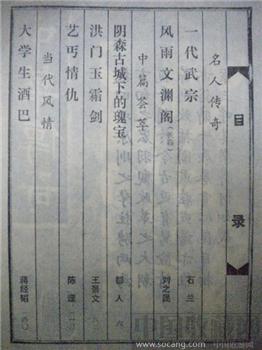 目 录
名人传奇
一代武宗 石 兰
风雨文渊阁 刘之昆
中篇荟萃
阴森古城下的瑰宝 郁 人 六
洪门玉霜剑 王景文
艺丐情仇 陈 理
当代风情
大学生酒巴 蒋经韬 四〇
www.socang.com